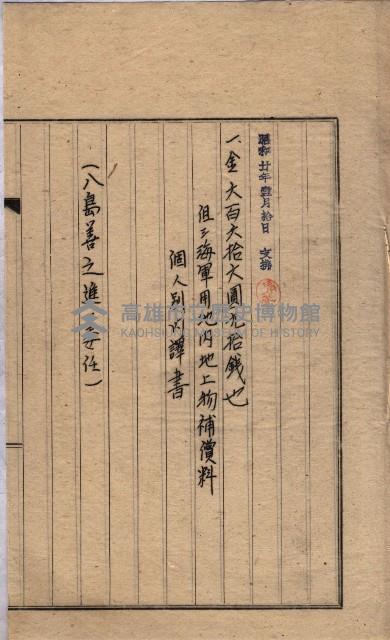 昭和廿年壹月拾日 支拂
一、金六百六拾六圓九拾錢也
但シ海軍用地內地上物補償料
個人別內譯書
(八島善之進 委任)
高雄市立歷史博物館
KAOHSIUNG MUSEUM OF HISTORY